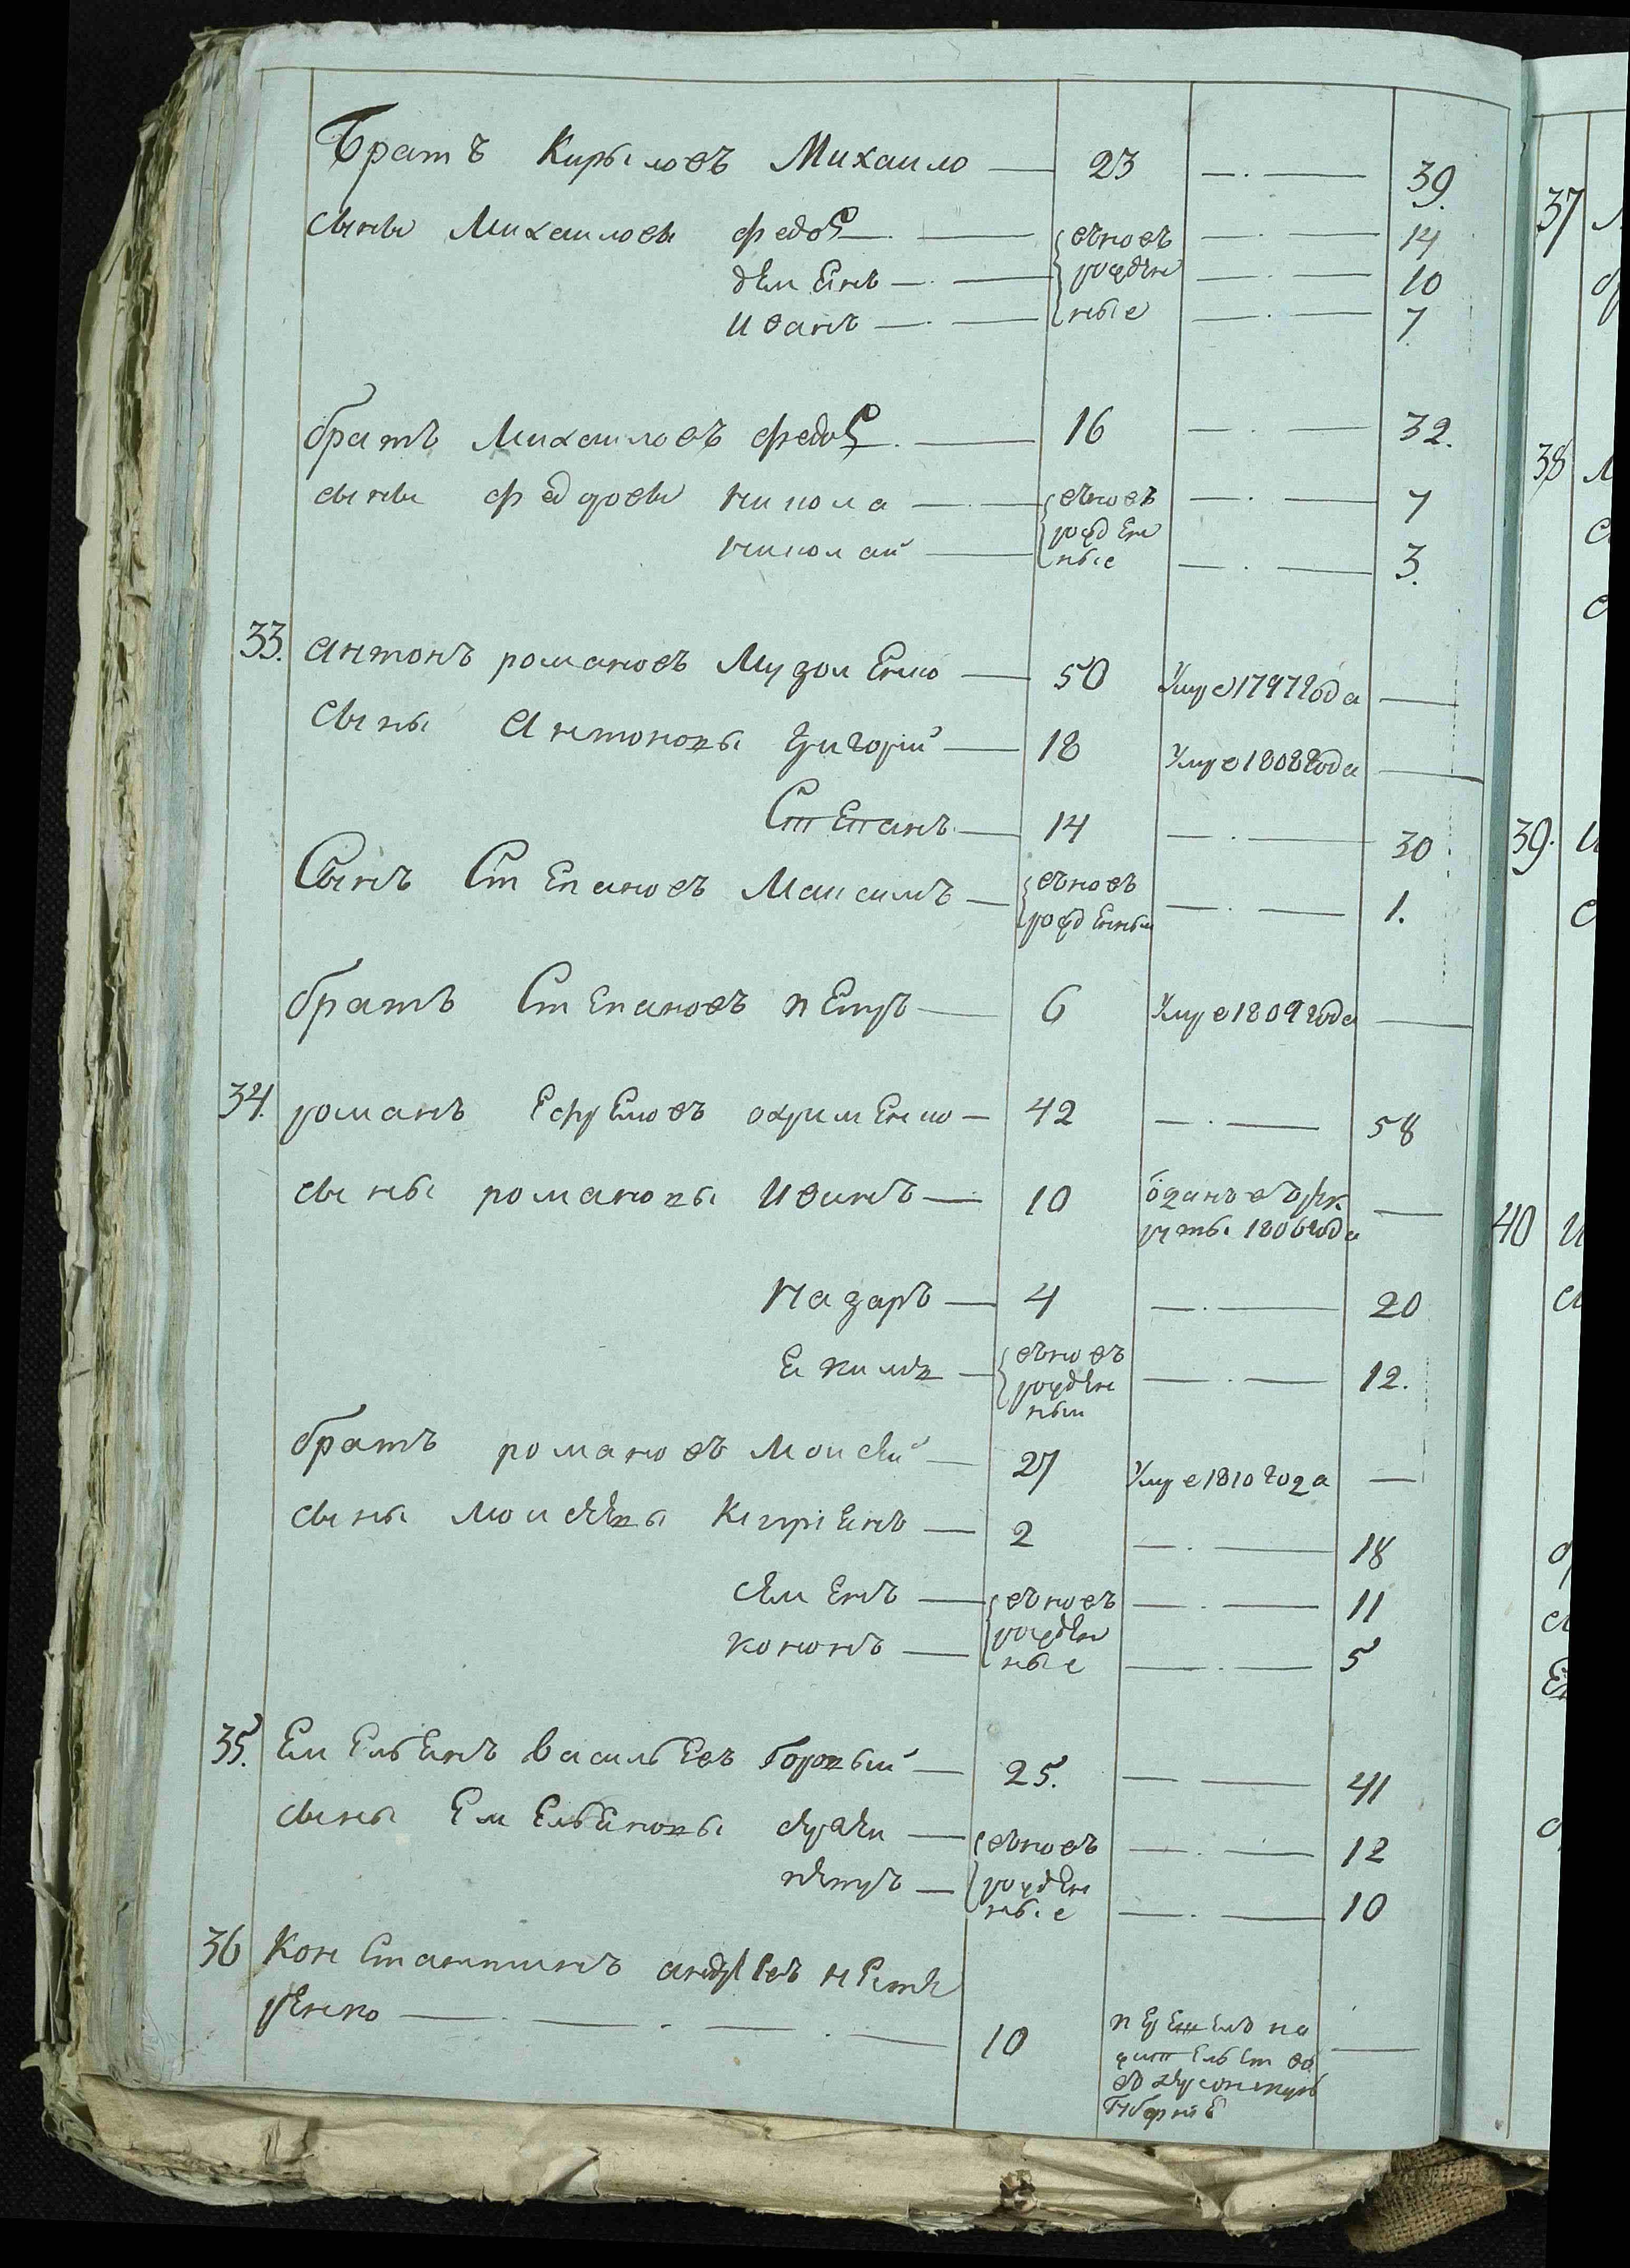 Братъ Кирыловъ Михаило — 23 —.— 39.
сынъи Михаиловы федоръ —.— вновь —.— 14
демянъ —.— рожден —.— 10
иванъ —.— ные —.— 7
братъ Михаиловъ федоръ .— 16 —.— 32.
сынъи федоровы никола —.— вновь —.— 7
николай — рожден ные —.— 3.
33. антонъ романовъ Музоленко — 50 Умре 1797 года —
сыны Антоновы григорий — 18 Умре 1808 года —
Степанъ — 14 —.— 30
Сынъ Степановъ Максимъ — вновь рожденный —.— 1.
братъ Степановъ петръ — 6 Умре 1809 года —
34. романъ Ефремовъ охрименко — 42 —.— 58
сыны романовы иванъ — 10 озанъ в рек
руты 1806 года —
назаръ — 4 —.— 20
екимъ — вновь рожден ный —.— 12.
братъ романовъ Моисей — 27 Умре 1810 года —
сыны моисеевы Киприянъ — 2 —.— 18
семенъ — вновь —.— 11
кононъ — рожден ные —.— 5
35. Емельянъ васильевъ Горовый — 25. — — 41
сыны Емельяновы сергей — вновь —.— 12
петръ — рожден ные —.— 10
36 Константинъ андреевъ
ренко —.—.—.— 10 перешелъ на —
жительство
в херсонскую
Губернию
37
38
39.
40